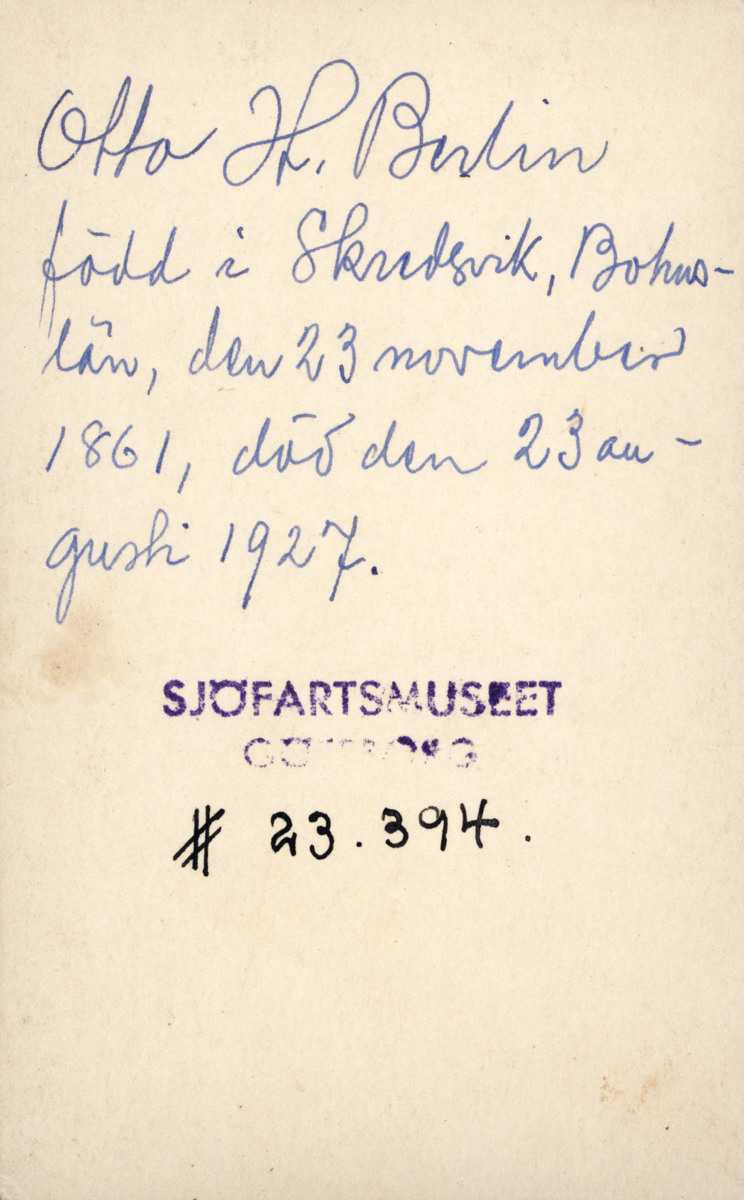 Otto H. Berlin
född i Skredsvik, Bohus-
län, den 23 november
1861, död den 23 au-
gusti 1927.
SJÖFARTSMUSEET
GÖTEBORG
# 23.394.